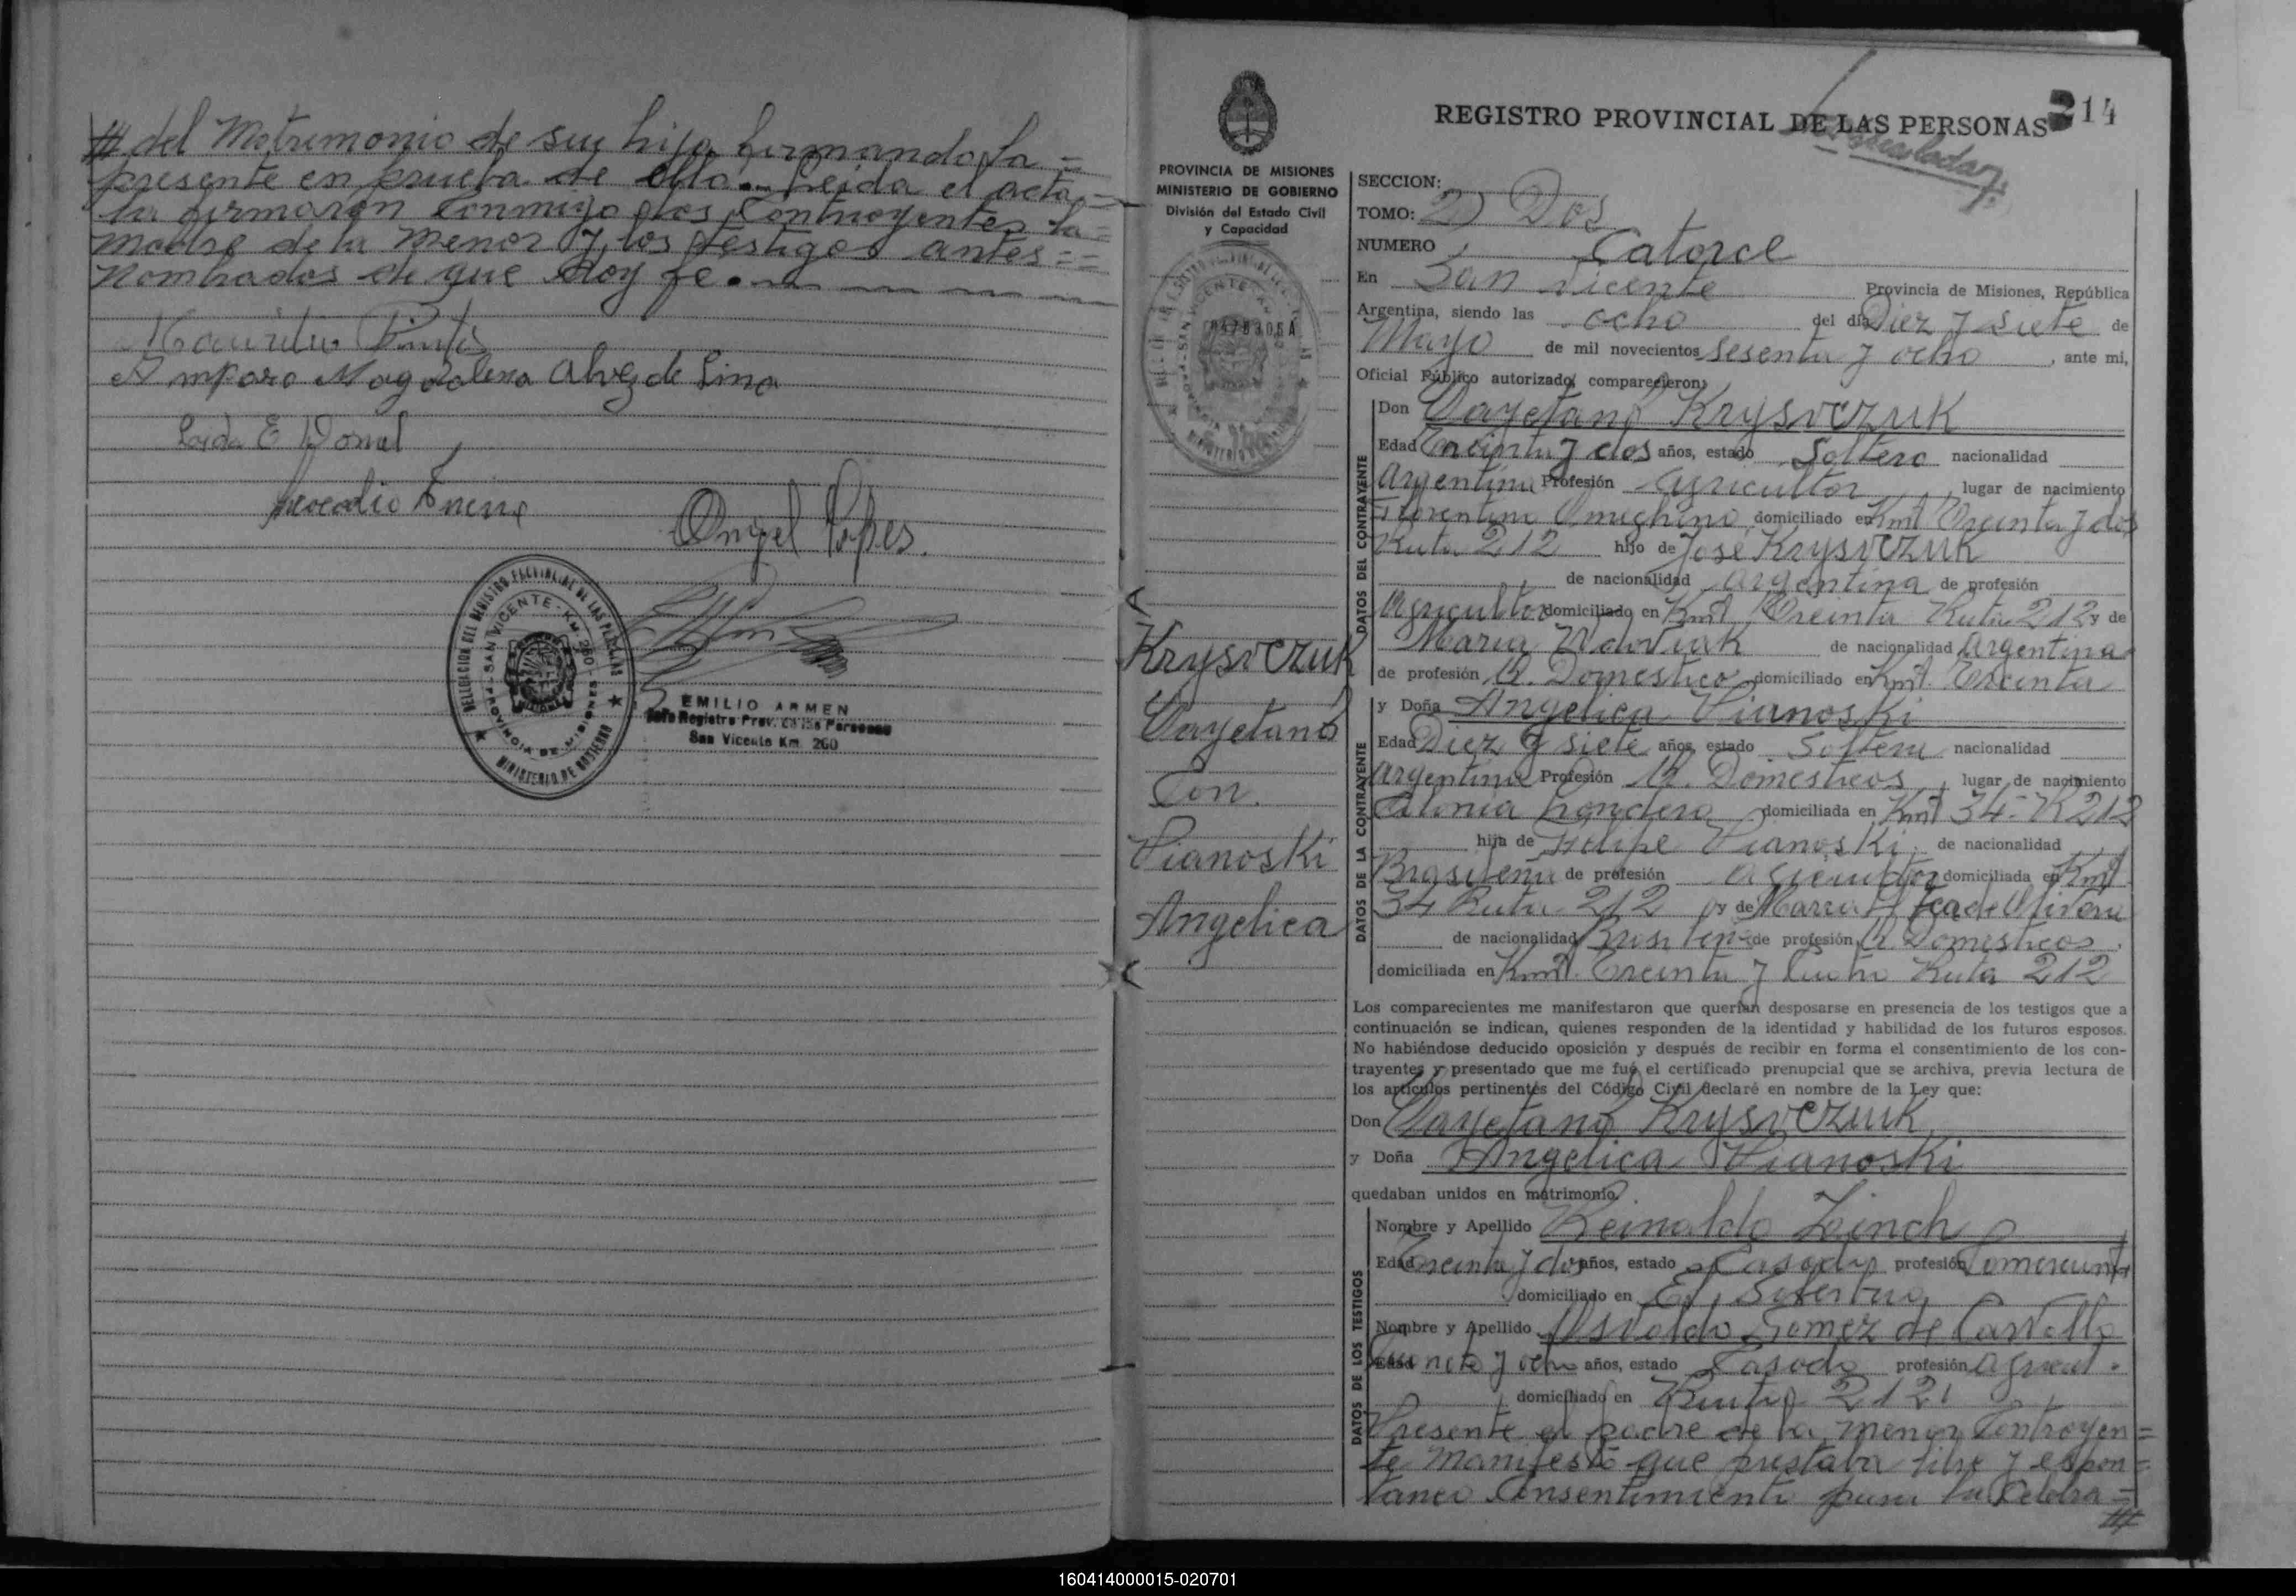 /// del Matrimonio de su hija firmando la =
presente en prueba de ello. Leida el acta =
la firmaron conmigo los Contrayentes la =
madre de la menor y los testigos antes ==
Nombrados de que doy fe.
Amparo Magdalena Alvez de Lima
Angel
DELEGACION DEL REGISTRO PROVINCIAL DE LAS PERSONAS
SAN VICENTE - KM. 260 -
PROVINCIA DE MISIONES
MINISTERIO DE GOBIERNO
EMILIO ARMEN
Jefe Registro Prov. de las Personas
San Vicente Km. 260
PROVINCIA DE MISIONES
MINISTERIO DE GOBIERNO
División del Estado Civil
y Capacidad
Krysvczuk
Cayetano
Con.
Pianoski
Angelica
REGISTRO PROVINCIAL DE LAS PERSONAS
214
SECCION:
TOMO: 2) Dos
NUMERO Catorce
En San Vicente Provincia de Misiones, República
Argentina, siendo las ocho del día Diez y siete de
Mayo de mil novecientos sesenta y ocho, ante mi,
Oficial Público autorizado, comparecieron:
DATOS DEL CONTRAYENTE
Don Cayetano Krysvczuk
Edad Treinta y dos años, estado Soltero nacionalidad
Argentina Profesión Agricultor, lugar de nacimiento
Florentino Ameghino domiciliado en Kmt Treinta y dos
Ruta 212 hijo de José Krysvczuk
de nacionalidad argentina de profesión
Agricultor domiciliado en Kmt Treinta Ruta 212 y de
Maria de nacionalidad Argentina
de profesión Q. Domestico domiciliado en Kmt. Treinta
DATOS DE LA CONTRAYENTE
y Doña Angelica Pianoski
Edad Diez y siete años, estado Soltera nacionalidad
Argentina Profesión Q. Domesticos, lugar de nacimiento
Colonia domiciliada en Kmt 34 - R 212
hija de Felipe Pianoski, de nacionalidad
Brasileña de profesión agricultor domiciliada en Kmt
34 Ruta 212 y de Maria de Olivera
de nacionalidad Brasileña de profesión Q. Domesticos.
domiciliada en Kmt. Treinta y Cuatro Ruta 212
Los comparecientes me manifestaron que querían desposarse en presencia de los testigos que a
continuación se indican, quienes responden de la identidad y habilidad de los futuros esposos.
No habiéndose deducido oposición y después de recibir en forma el consentimiento de los con-
trayentes y presentado que me fué el certificado prenupcial que se archiva, previa lectura de
los artículos pertinentes del Código Civil declaré en nombre de la Ley que:
Don Cayetano Krysvczuk
y Doña Angelica Pianoski
quedaban unidos en matrimonio.
DATOS DE LOS TESTIGOS
Nombre y Apellido Reinaldo Zinch
Edad Treinta y dos años, estado Casado profesión Comerciante
domiciliado en El Soberbio
Nombre y Apellido Osvaldo Gomez de Carvallo
Edad Cuarenta y ocho años, estado Casado profesión Agricul.
domiciliado en Ruta 212
Presente el padre de la menor Contrayen =
te Manifestó que prestaba libre y espon =
taneo Consentimiento para la Celebra =
///
160414000015-020701